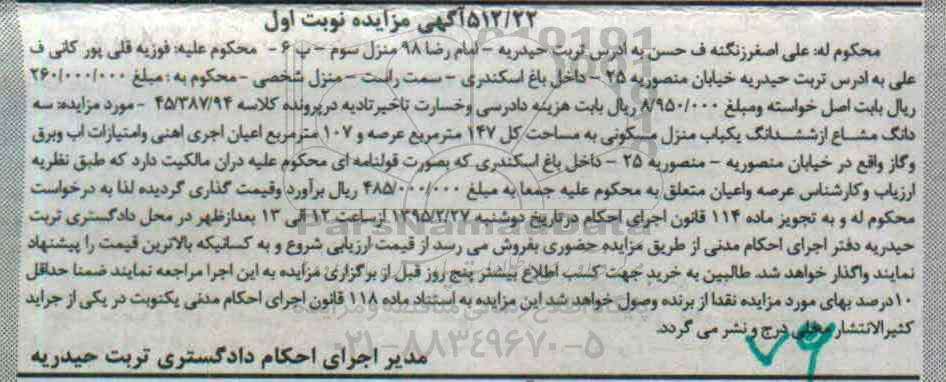 ۵۱۲/۲۲آگهی مزایده نوبت اول
محکوم له: علی اصغرزنگنه ف حسن به ادرس تربت حیدریه - امام رضا ۹۸ منزل سوم - پ ۶ - محکوم علیه: فوزیه قلی پور کانی ف
علی به ادرس تربت حیدریه خیابان منصوریه ۲۵ - داخل باغ اسکندری - سمت راست - منزل شخصی -محکوم به : مبلغ ۲۶۰/۰۰۰/۰۰۰
ریال بابت اصل خواسته ومبلغ ۸/۹۵۰/۰۰۰ ریال بابت هزینه دادرسی وخسارت تاخیرتادیه درپرونده کلاسه ۴۵/۳۸۷/۹۴ -مورد مزایده: سه
دانگ مشاع ازششدانگ یکباب منزل مسکونی به مساحت کل ۱۴۷ مترمربع عرصه و ۱۰۷ مترمربع اعیان اجری اهنی وامتیازات اب وبرق
وگاز واقع در خیابان منصوریه - منصوریه ۲۵ - داخل باغ اسکندری که بصورت قولنامه ای محکوم علیه دران مالکیت دارد که طبق نظریه
ارزیاب وکارشناس عرصه واعیان متعلق به محکوم علیه جمعا به مبلغ ۴۸۵/۰۰۰/۰۰۰ ریال برآورد وقیمت گذاری گردیده لذا به درخواست
محکوم له و به تجویز ماده ۱۱۴ قانون اجرای احکام درتاریخ دوشنبه ۱۳۹۵/۲/۲۷ ازساعت ۱۲ الی ۱۳ بعدازظهر در محل دادگستری تربت
حیدریه دفتر اجرای احکام مدنی از طریق مزایده حضوری بفروش می رسد از قیمت ارزیابی شروع و به کسانیکه بالاترین قیمت را پیشنهاد
نمایند واگذار خواهد شد. طالبین به خرید جهت کسب اطلاع بیشتر پنج روز قبل از برگزاری مزایده به این اجرا مراجعه نمایند ضمنا حداقل
۱۰درصد بهای مورد مزایده نقدا از برنده وصول خواهد شد این مزایده به استناد ماده ۱۱۸ قانون اجرای احکام مدنی یکنوبت در یکی از جراید
کثیرالانتشار محلی درج و نشر می گردد.
مدیر اجرای احکام دادگستری تربت حیدریه
ParsNamadData
۰۲۱-۸۸۳۴۹۶۷۰-۵